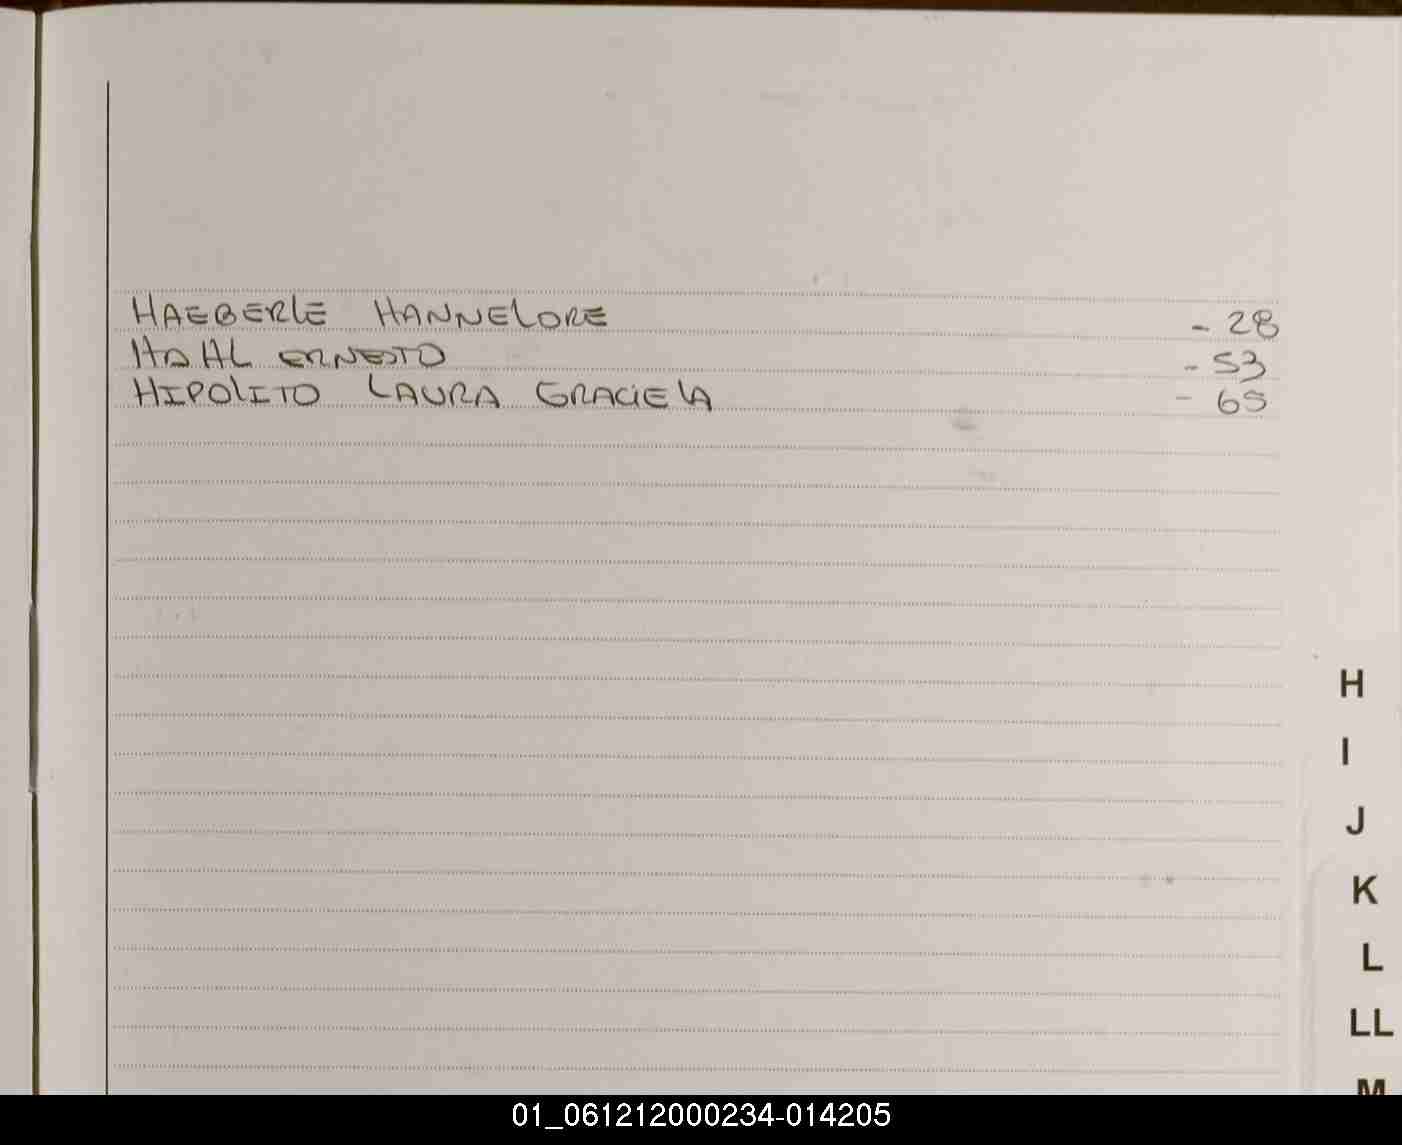 HAEBERLE HANNELORE - 28
HAHL ERNESTO - 53
HIPOLITO LAURA GRACIELA - 65
H
I
J
K
L
LL
M
01_061212000234-014205